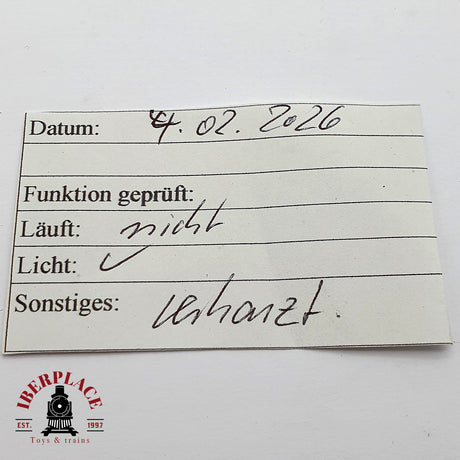 Datum: 4. 02. 2026
Funktion geprüft:
Läuft: nicht
Licht: ✓
Sonstiges: verharzt.
IBERPLACE
EST. 1997
Toys & trains